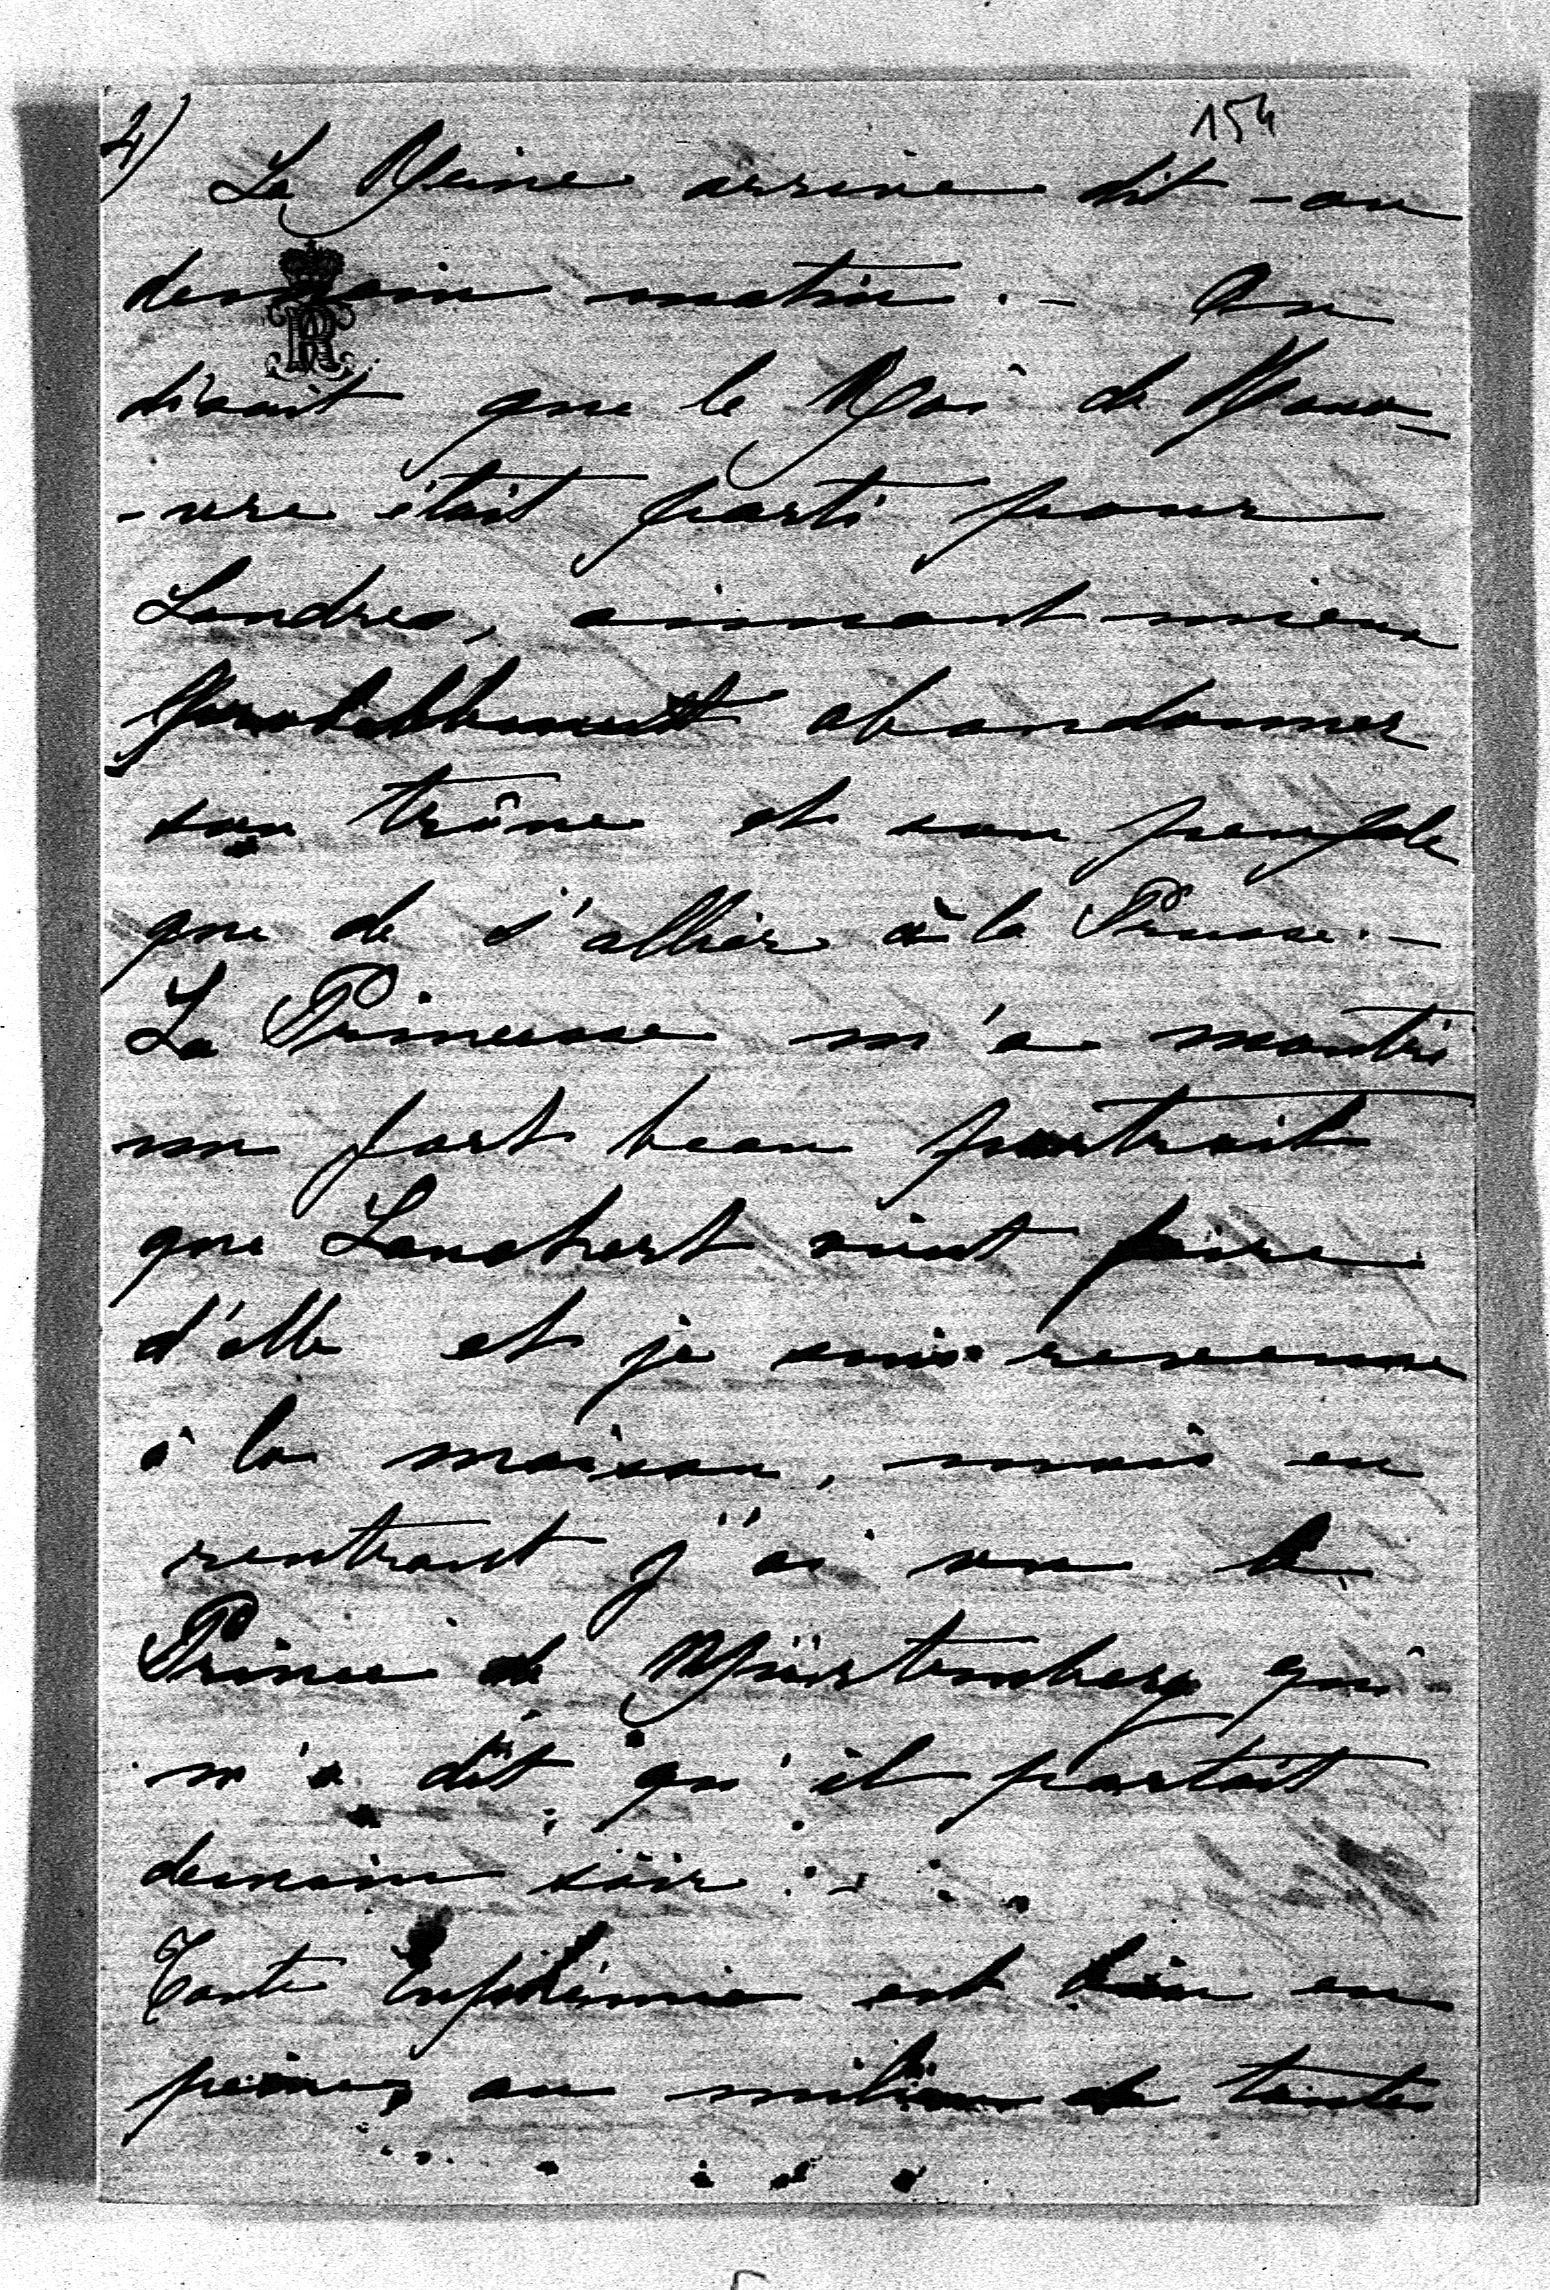 4)
154
La Reine arrive dit-on
demain matin. - On
disait que le Roi de Hano-
-vre était parti pour
Londres, aimant mieux
probablement abandonner
son trône et son peuple
que de s'allier à la Prusse. -
La Princesse m'a montré
un fort beau portrait
que Lanchert vient faire
d'elle et je suis revenue
à la maison, mais en
rentrant j'ai vu le
Prince de Würtemberg qui
m'a dit qu'il partait
demain soir. -
Tante Euphémie est bien en
peine, au milieu de toutes